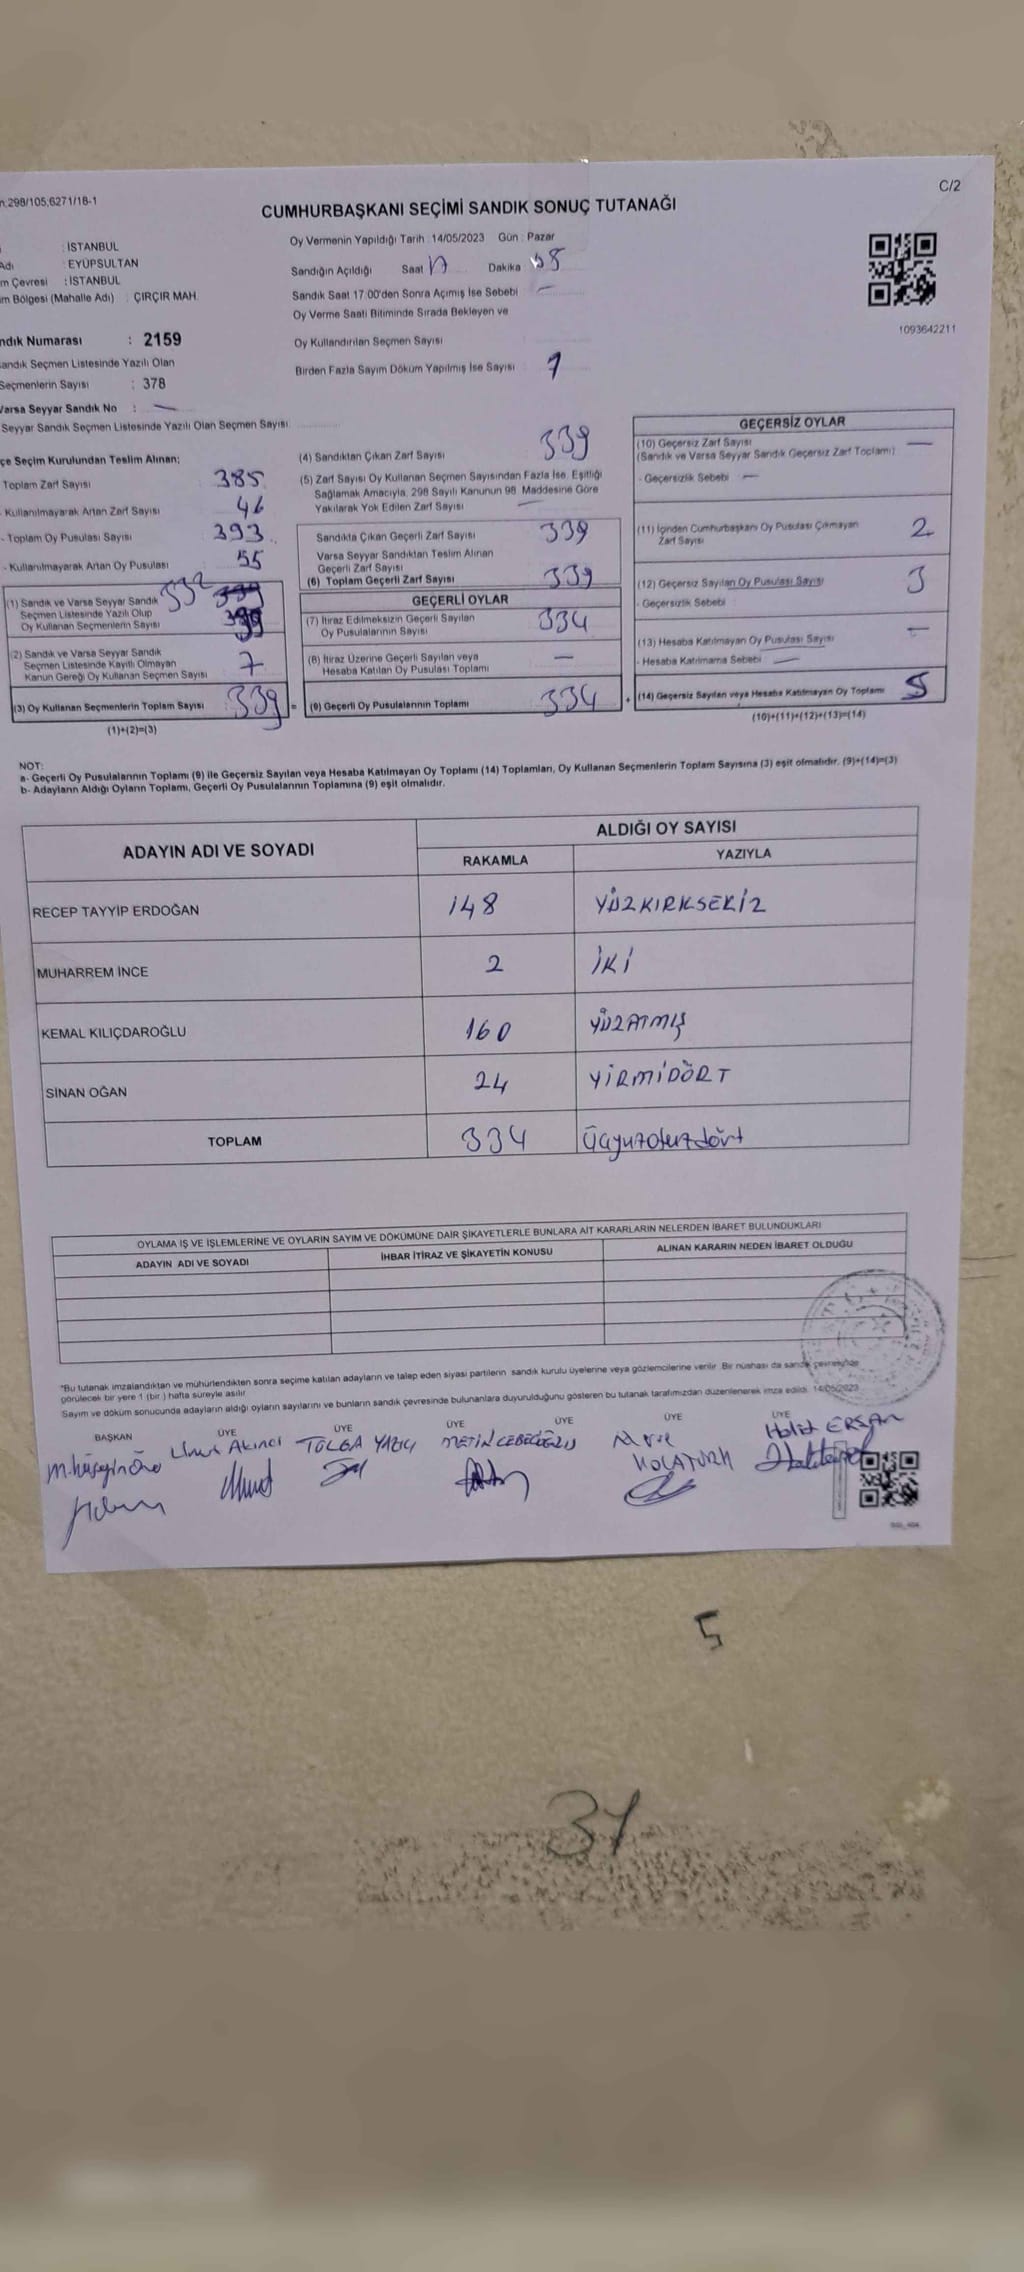 298/105,6271/18-1
C/2
CUMHURBAŞKANI SEÇİMİ SANDIK SONUÇ TUTANAĞI
: İSTANBUL
Adı : EYÜPSULTAN
m Çevresi : İSTANBUL
m Bölgesi (Mahalle Adı) : ÇIRÇIR MAH.
Oy Vermenin Yapıldığı Tarih : 14/05/2023 Gün : Pazar
Sandığın Açıldığı Saat Dakika
Sandık Saat 17.00'den Sonra Açımış İse Sebebi —
Oy Verme Saati Bitiminde Sırada Bekleyen ve
Oy Kullandırılan Seçmen Sayısı
Birden Fazla Sayım Döküm Yapılmış İse Sayısı 1
1093642211
ndık Numarası : 2159
andık Seçmen Listesinde Yazılı Olan
Seçmenlerin Sayısı : 378
Varsa Seyyar Sandık No : —
Seyyar Sandık Seçmen Listesinde Yazılı Olan Seçmen Sayısı:
çe Seçim Kurulundan Teslim Alınan;
Toplam Zarf Sayısı 385
- Kullanılmayarak Artan Zarf Sayısı 46
- Toplam Oy Pusulası Sayısı 393
- Kullanılmayarak Artan Oy Pusulası 55
(1) Sandık ve Varsa Seyyar Sandık 332
Seçmen Listesinde Yazılı Olup
Oy Kullanan Seçmenlerin Sayısı
(2) Sandık ve Varsa Seyyar Sandık
Seçmen Listesinde Kayıtlı Olmayan 7
Kanun Gereği Oy Kullanan Seçmen Sayısı
(3) Oy Kullanan Seçmenlerin Toplam Sayısı 339 =
(1)+(2)=(3)
(4) Sandıktan Çıkan Zarf Sayısı 339
(5) Zarf Sayısı Oy Kullanan Seçmen Sayısından Fazla İse, Eşitliği
Sağlamak Amacıyla, 298 Sayılı Kanunun 98. Maddesine Göre
Yakılarak Yok Edilen Zarf Sayısı —
Sandıkta Çıkan Geçerli Zarf Sayısı 339
Varsa Seyyar Sandıktan Teslim Alınan
Geçerli Zarf Sayısı
(6) Toplam Geçerli Zarf Sayısı 339
GEÇERLİ OYLAR
(7) İtiraz Edilmeksizin Geçerli Sayılan
Oy Pusulalarının Sayısı 334
(8) İtiraz Üzerine Geçerli Sayılan veya
Hesaba Katılan Oy Pusulası Toplamı —
(9) Geçerli Oy Pusulalarının Toplamı 334 +
GEÇERSİZ OYLAR
(10) Geçersiz Zarf Sayısı —
(Sandık ve Varsa Seyyar Sandık Geçersiz Zarf Toplamı)
- Geçersizlik Sebebi —
(11) İçinden Cumhurbaşkanı Oy Pusulası Çıkmayan 2
Zarf Sayısı
(12) Geçersiz Sayılan Oy Pusulası Sayısı 3
- Geçersizlik Sebebi
(13) Hesaba Katılmayan Oy Pusulası Sayısı —
- Hesaba Katılmama Sebebi —
(14) Geçersiz Sayılan veya Hesaba Katılmayan Oy Toplamı 5
(10)+(11)+(12)+(13)=(14)
NOT:
a- Geçerli Oy Pusulalarının Toplamı (9) ile Geçersiz Sayılan veya Hesaba Katılmayan Oy Toplamı (14) Toplamları, Oy Kullanan Seçmenlerin Toplam Sayısına (3) eşit olmalıdır. (9)+(14)=(3)
b- Adayların Aldığı Oyların Toplamı, Geçerli Oy Pusulalarının Toplamına (9) eşit olmalıdır.
ADAYIN ADI VE SOYADI
ALDIĞI OY SAYISI
RAKAMLA YAZIYLA
RECEP TAYYİP ERDOĞAN 148 YÜZKIRKSEKİZ
MUHARREM İNCE 2 İKİ
KEMAL KILIÇDAROĞLU 160 YÜZATMIŞ
SİNAN OĞAN 24 YİRMİDÖRT
TOPLAM 334 Üçyüzotuzdört
OYLAMA İŞ VE İŞLEMLERİNE VE OYLARIN SAYIM VE DÖKÜMÜNE DAİR ŞİKAYETLERLE BUNLARA AİT KARARLARIN NELERDEN İBARET BULUNDUKLARI
ADAYIN ADI VE SOYADI İHBAR İTİRAZ VE ŞİKAYETİN KONUSU ALINAN KARARIN NEDEN İBARET OLDUĞU
*Bu tutanak imzalandıktan ve mühürlendikten sonra seçime katılan adayların ve talep eden siyasi partilerin sandık kurulu üyelerine veya gözlemcilerine verilir. Bir nüshası da sandık çevresinde
görülecek bir yere 1 (bir) hafta süreyle asılır.
Sayım ve döküm sonucunda adayların aldığı oyların sayılarını ve bunların sandık çevresinde bulunanlara duyurulduğunu gösteren bu tutanak tarafımızdan düzenlenerek imza edildi. 14/05/2023
BAŞKAN ÜYE ÜYE ÜYE ÜYE ÜYE ÜYE
Akıncı TOLGA YAZICI METİN Halit ERSAN
5
31